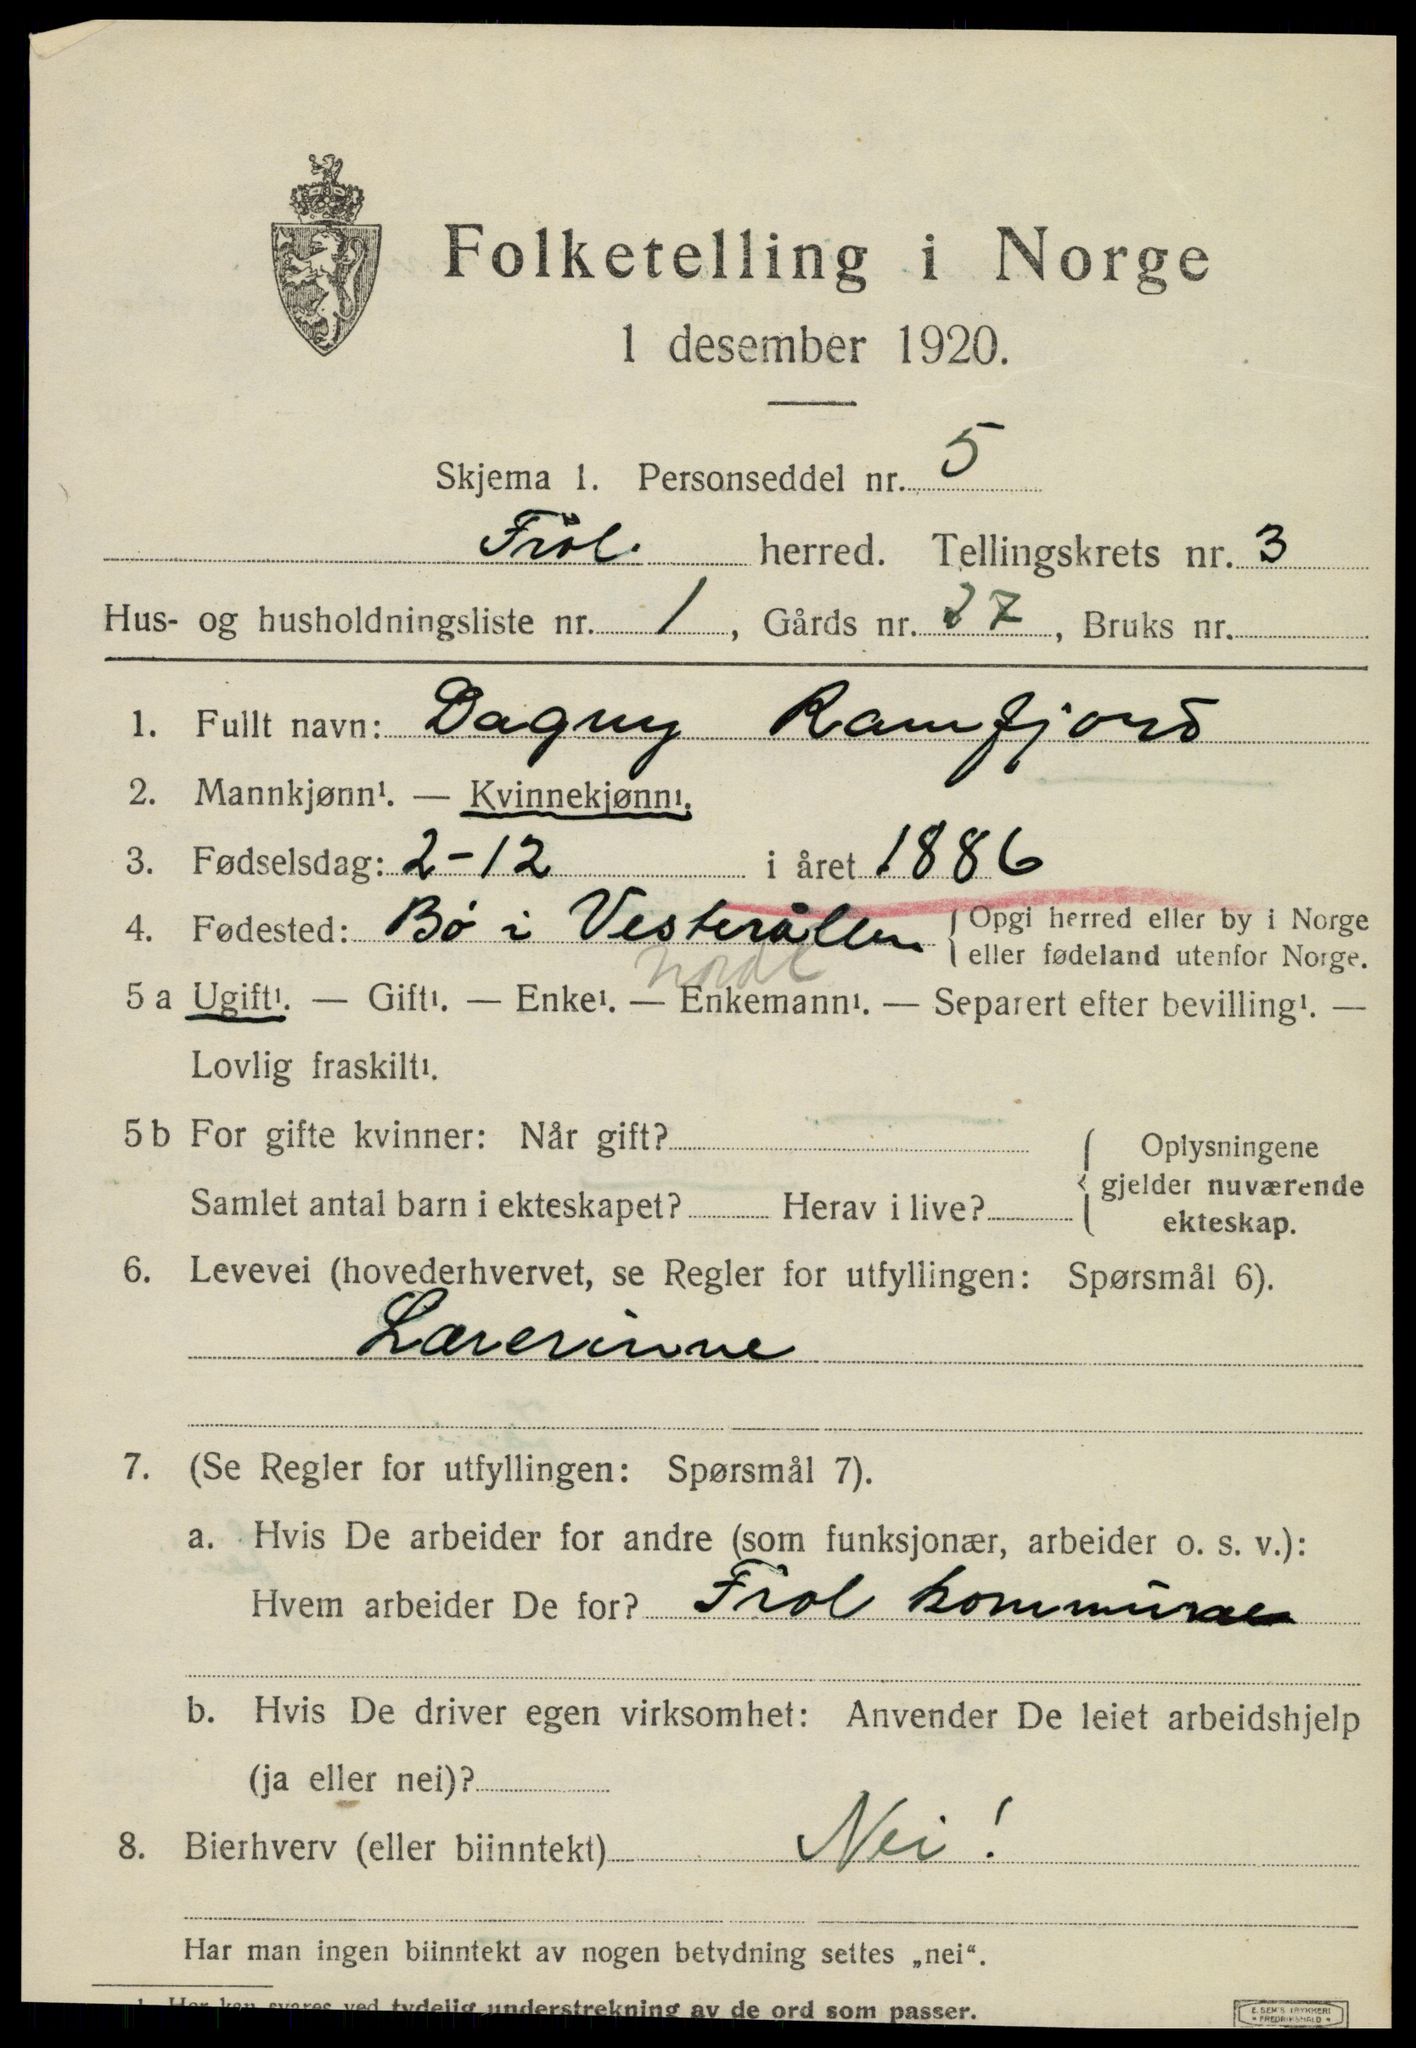 Folketelling i Norge
1 desember 1920.
Skjema 1. Personseddel nr. 5
Frol herred. Tellingskrets nr. 3
Hus- og husholdningsliste nr. 1, Gårds nr. 27, Bruks nr.
1. Fullt navn: Dagny Ramfjord
2. Mannkjønn¹. — Kvinnekjønn¹.
3. Fødselsdag: 2-12 i året 1886
4. Fødested: Bø i Vesterållen { Opgi herred eller by i Norge
eller fødeland utenfor Norge.
Nordl
5 a Ugift¹. — Gift¹. — Enke¹. — Enkemann¹. — Separert efter bevilling¹. —
Lovlig fraskilt¹.
5 b For gifte kvinner: Når gift? { Oplysningene
gjelder nuværende
Samlet antal barn i ekteskapet? Herav i live? ekteskap.
6. Levevei (hovederhvervet, se Regler for utfyllingen: Spørsmål 6).
Lærerinne
7. (Se Regler for utfyllingen: Spørsmål 7).
a. Hvis De arbeider for andre (som funksjonær, arbeider o. s. v.):
Hvem arbeider De for? Frol kommune
b. Hvis De driver egen virksomhet: Anvender De leiet arbeidshjelp
(ja eller nei)?
8. Bierhverv (eller biinntekt) Nei!
Har man ingen biinntekt av nogen betydning settes „nei“.
1. Her kan svares ved tydelig understrekning av de ord som passer.
E. SEM'S TRYKKERI
FREDRIKSHALD